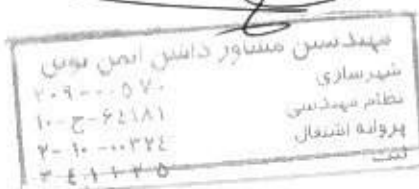 مهندسین مشاور دانش ایمن نوین
شهرسازی ۲۰۹۰۰۰۵۷۰
نظام مهندسی ۱۰-ح-۶٤۱۸۱
پروانه اشتغال ۲-۱۰-۰۰۳۲٤
ثبت ۳٤۱۱۲۵